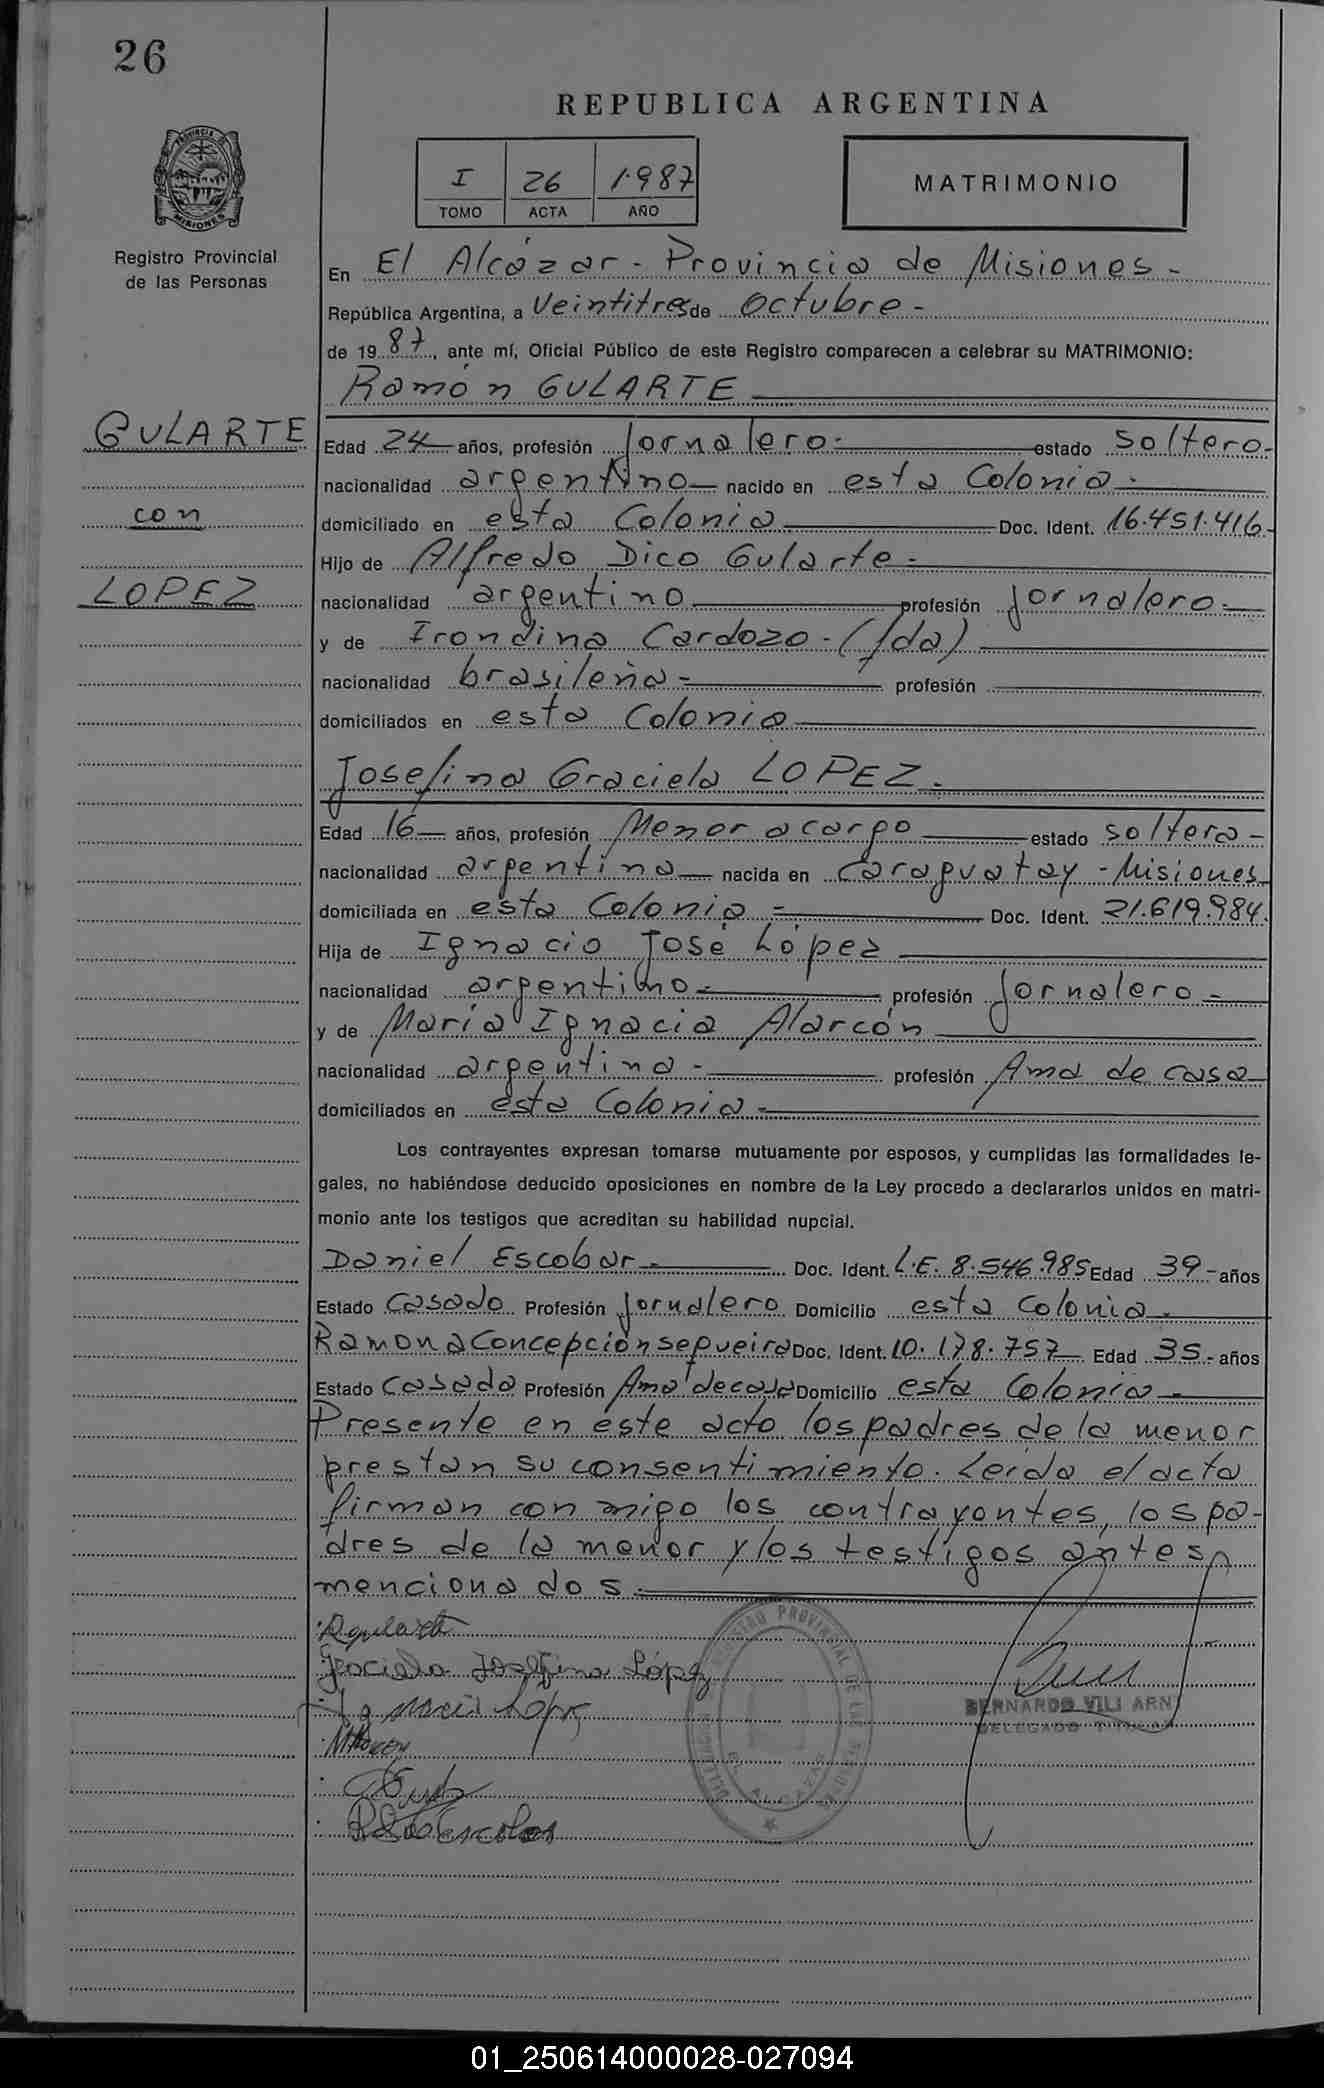 26
REPUBLICA ARGENTINA
PROVINCIA
MISIONES
Registro Provincial
de las Personas
I 26 1.987
TOMO ACTA AÑO
MATRIMONIO
En El Alcázar - Provincia de Misiones -
República Argentina, a Veintitres de Octubre -
de 19 87, ante mí, Oficial Público de este Registro comparecen a celebrar su MATRIMONIO:
Ramón GULARTE
GULARTE
con
LOPEZ
Edad 24 años, profesión Jornalero - estado Soltero -
nacionalidad argentino nacido en esta Colonia -
domiciliado en esta Colonia Doc. Ident. 16.451.416 -
Hijo de Alfredo Dico Gularte -
nacionalidad argentino profesión Jornalero -
y de Irondina Cardozo - (fda)
nacionalidad brasileña - profesión
domiciliados en esta Colonia
Josefina Graciela LOPEZ -
Edad 16 años, profesión Menor a cargo estado soltera -
nacionalidad argentina nacida en Caraguatay - Misiones
domiciliada en esta Colonia - Doc. Ident. 21.619.984.
Hija de Ignacio José López
nacionalidad argentino - profesión Jornalero -
y de María Ignacia Alarcón
nacionalidad argentina - profesión Ama de casa
domiciliados en esta Colonia -
Los contrayentes expresan tomarse mutuamente por esposos, y cumplidas las formalidades le-
gales, no habiéndose deducido oposiciones en nombre de la Ley procedo a declararlos unidos en matri-
monio ante los testigos que acreditan su habilidad nupcial.
Daniel Escobar - Doc. Ident. L.E. 8.546.985 Edad 39 - años
Estado Casado Profesión Jornalero Domicilio esta Colonia -
Ramona Concepción Sequeira Doc. Ident. 10.178.757 Edad 35 - años
Estado Casada Profesión Ama de casa Domicilio esta Colonia -
Presente en este acto los padres de la menor
prestan su consentimiento. Leída el acta
firman con migo los contrayentes, los pa-
dres de la menor y los testigos antes
mencionados -
Graciela Josefina López
BERNARDO VILI ARN
DELEGADO TITULAR
REGISTRO PROVINCIAL DE LAS PERSONAS
DELEGACION
EL ALCAZAR
01_250614000028-027094